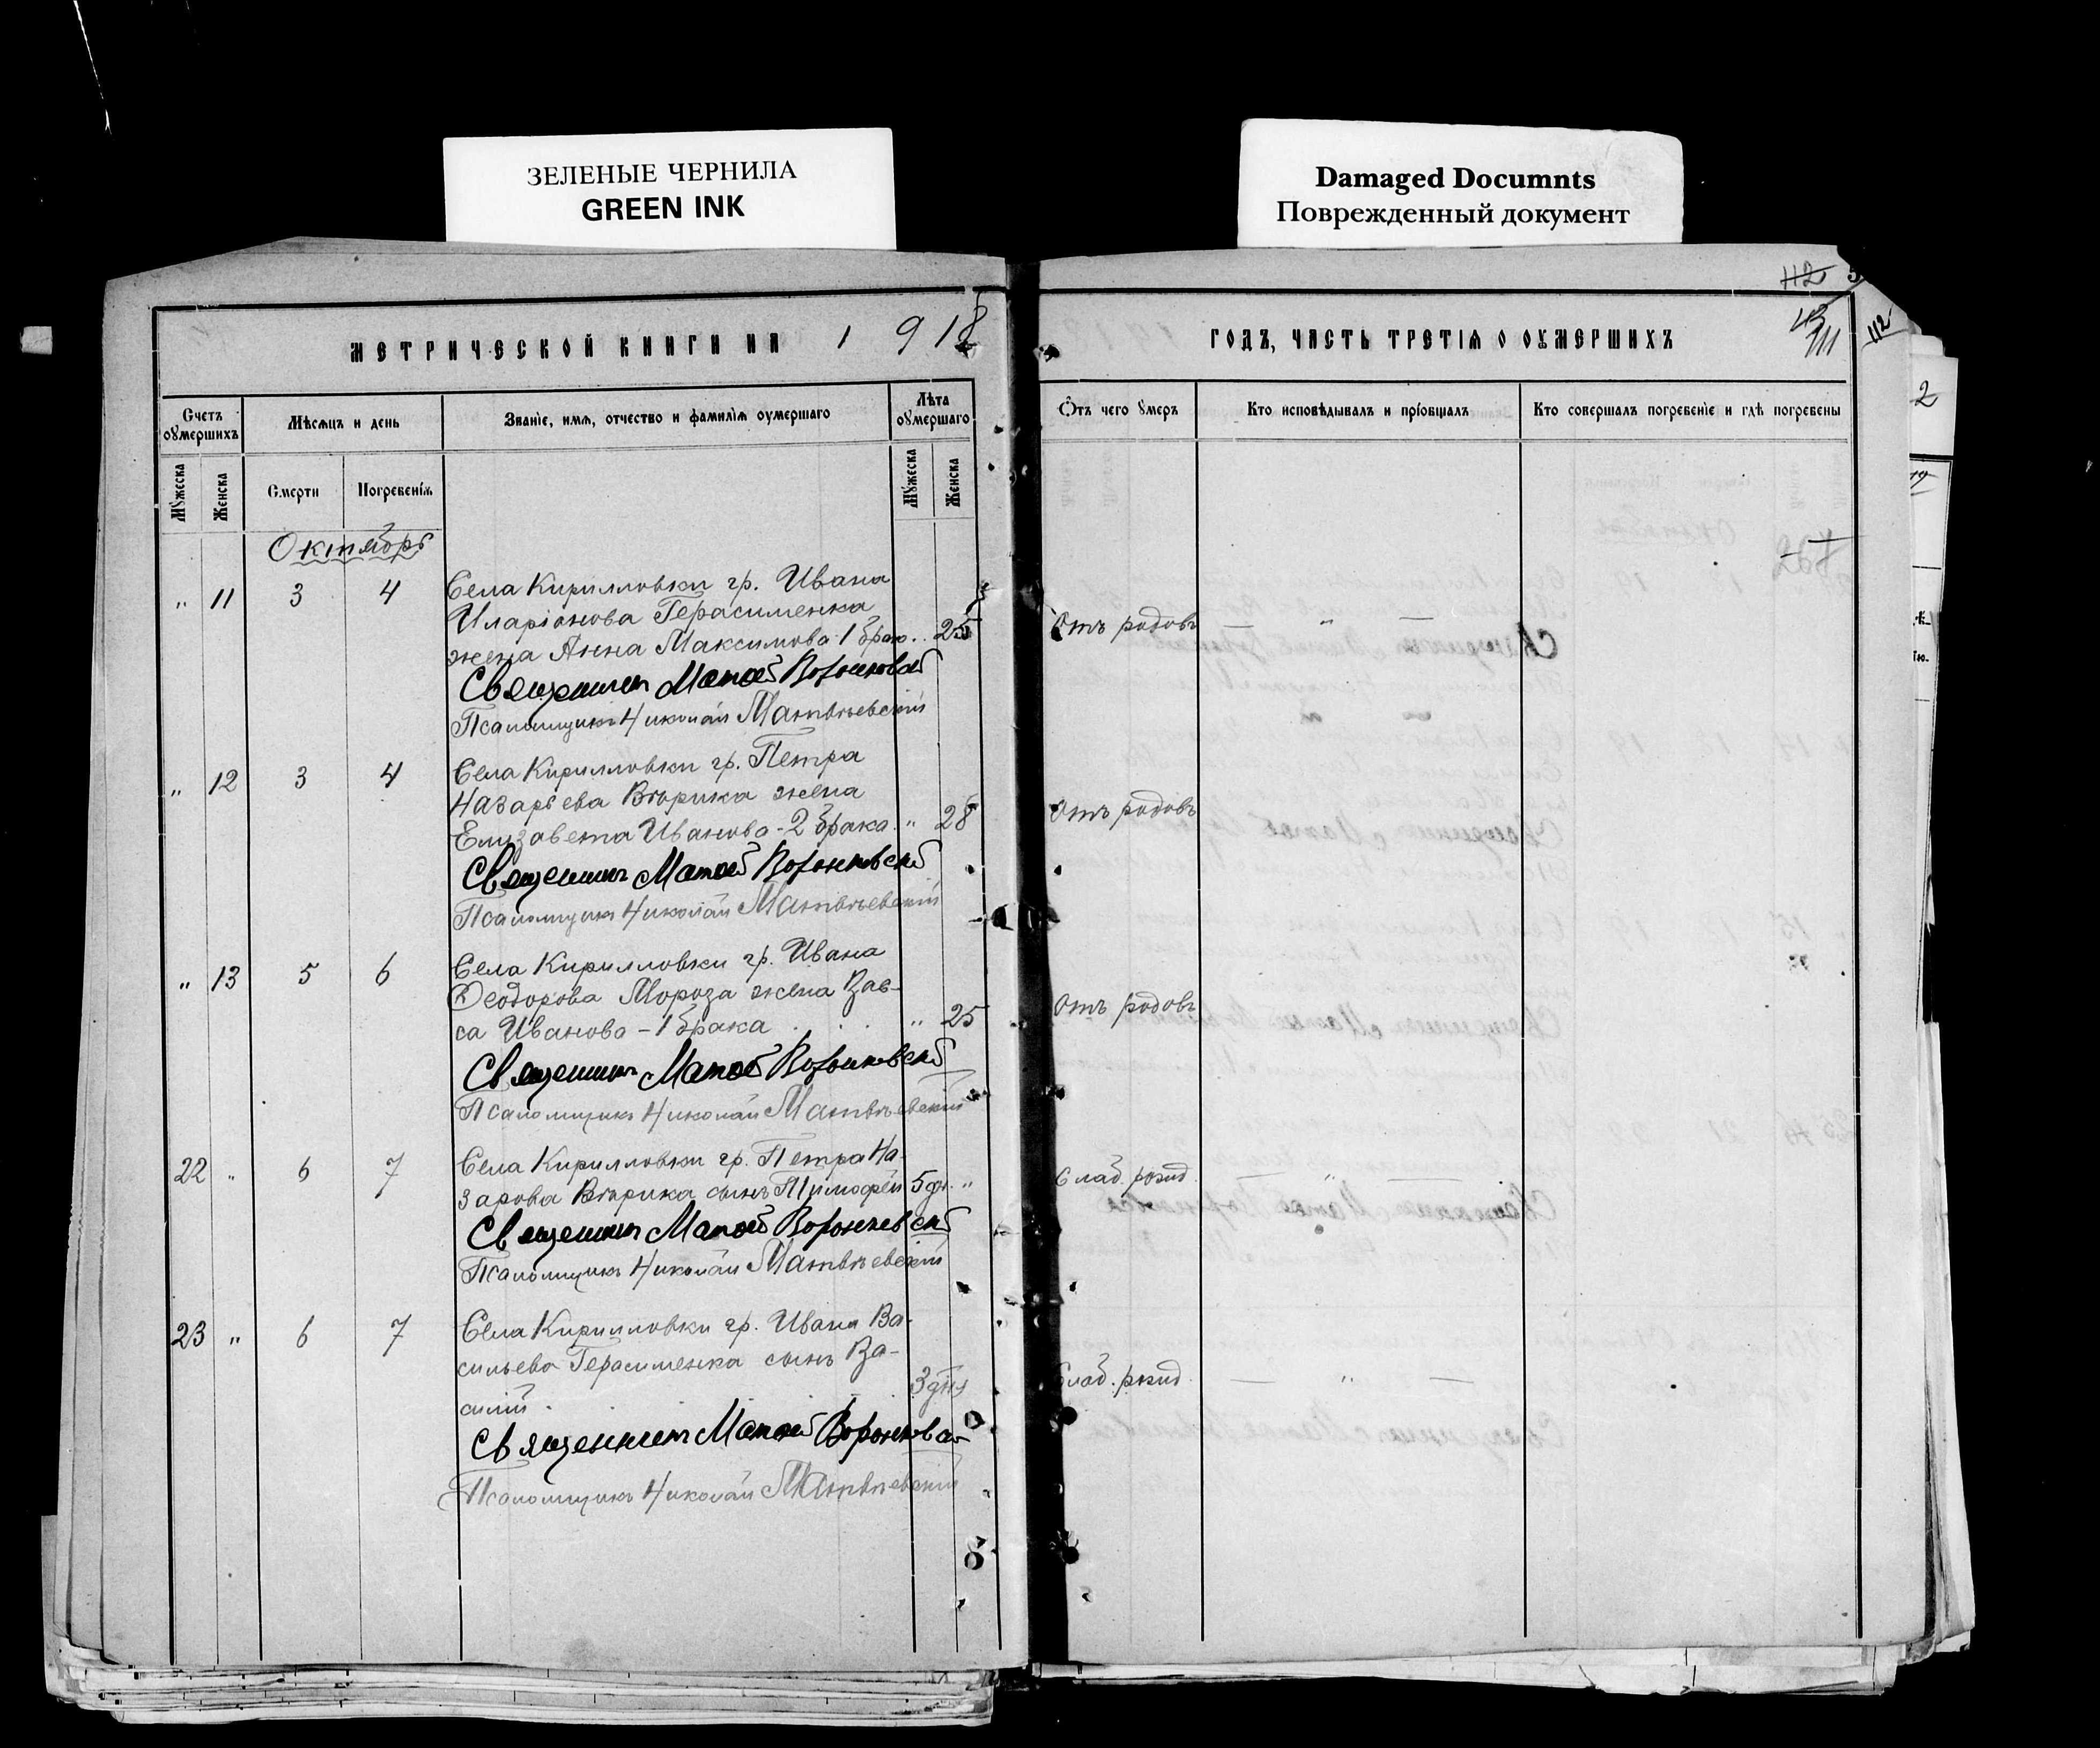 ЗЕЛЕНЫЕ ЧЕРНИЛА
GREEN INK
Damaged Documnts
Поврежденный документ
МЕТРИЧЕСКОЙ КНИГИ НА 1918
Счетъ оумершихъ
Мѣсяцъ и день
Званіе, имя, отчество и фамилія оумершаго
Лѣта оумершаго
Мужеска
Женска
Смерти
Погребенія
Мужеска
Женска
Октябрь
" 11 3 4 Села Кирилловки гр. Ивана
Иларіонова Герасименка
жена Анна Максимова 1 брак. 25
Священникъ Матвѣй Воронковскій
Псаломщикъ Николай Матвѣевскій
" 12 3 4 Села Кирилловки гр. Петра
Назарьева Вѣрика жена
Елизавета Иванова - 2 брака. " 28
Священникъ Матвѣй Воронковскій
Псаломщикъ Николай Матвѣевскій
" 13 5 6 Села Кирилловки гр. Ивана
Ѳеодорова Мороза жена Вас-
са Иванова - 1 брака " 25
Священникъ Матвѣй Воронковскій
Псаломщикъ Николай Матвѣевскій
22 " 6 7 Села Кирилловки гр. Петра На-
зарова Вѣрика сынъ Тимофей 5 дн. "
Священникъ Матвѣй Воронковскій
Псаломщикъ Николай Матвѣевскій
23 " 6 7 Села Кирилловки гр. Ивана Ва-
сильева Герасименка сынъ Ва-
силій 3 дня
Священникъ Матвѣй Воронковскій
Псаломщикъ Николай Матвѣевскій
112
111
112
ГОДЪ, ЧАСТЬ ТРЕТІЯ О ОУМЕРШИХЪ
Отъ чего умеръ
Кто исповѣдывалъ и пріобщалъ
Кто совершалъ погребеніе и гдѣ погребены
Отъ родовъ — " —
Отъ родовъ
Отъ родовъ
Слаб. рожд. — " —
Слаб. рожд. — " —
2